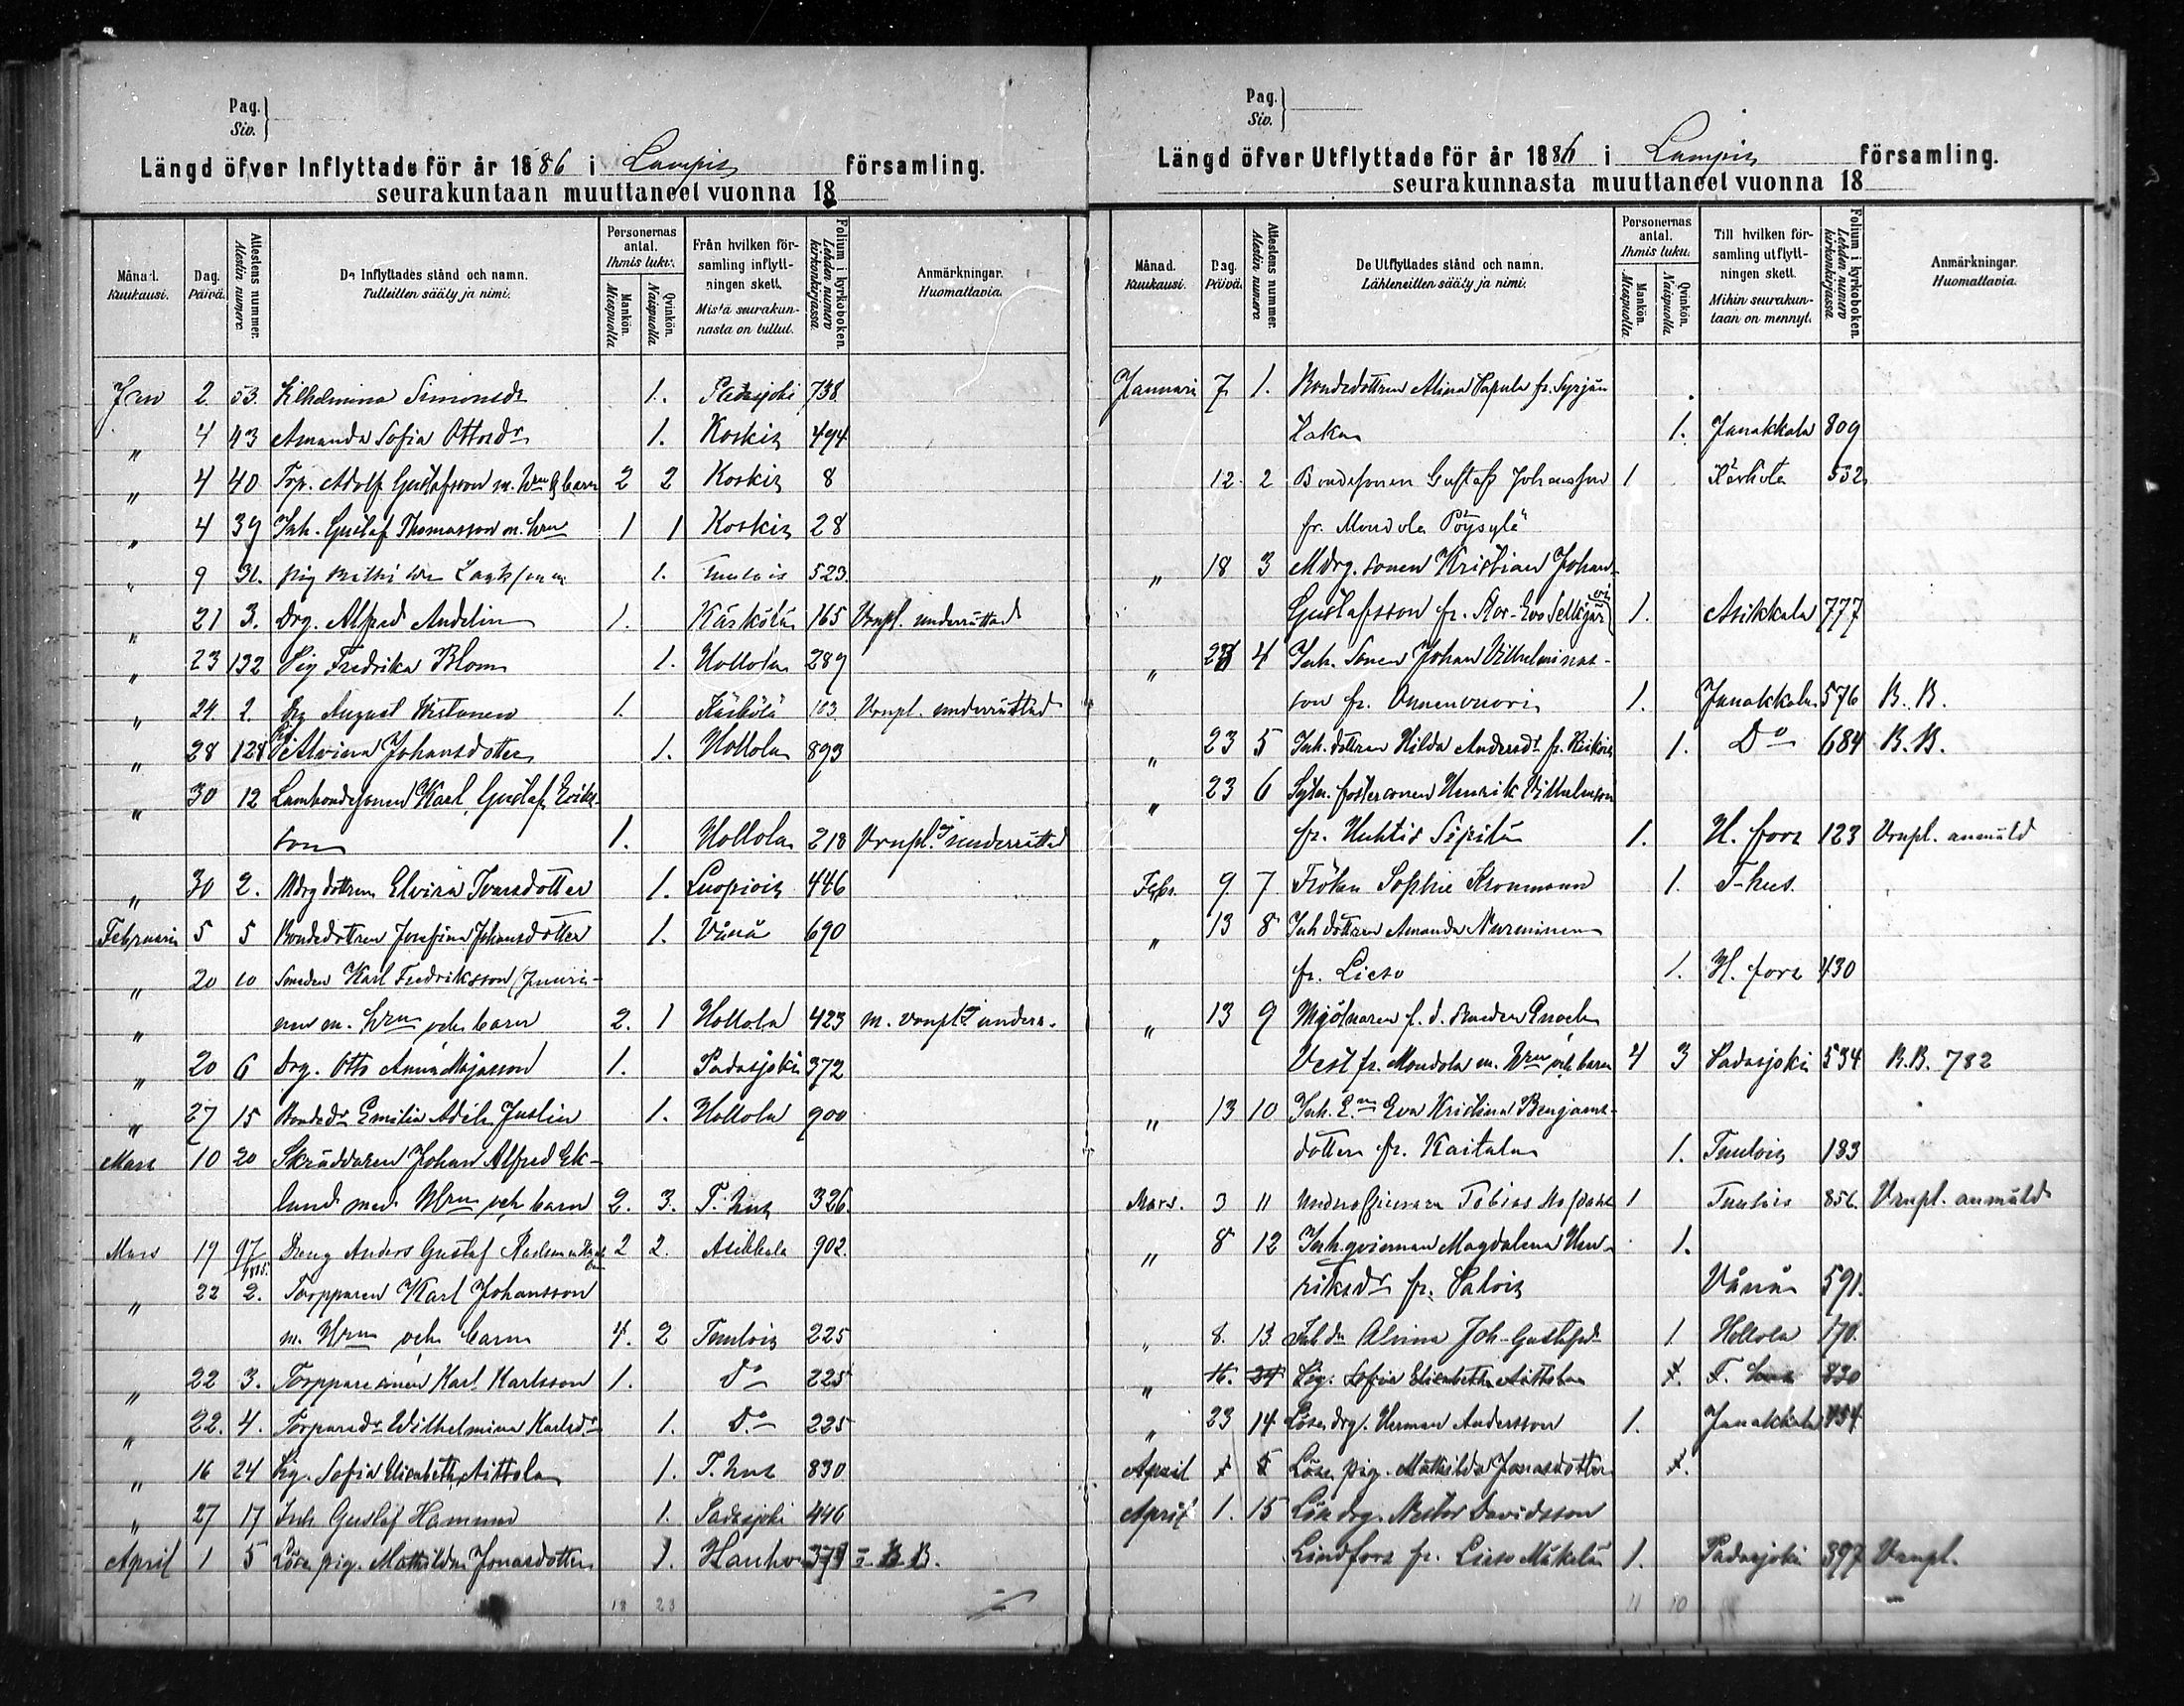 Pag.
Siv.
Längd öfver Inflyttade för år 1886 i Lampis församling.
seurakuntaan muuttaneet vuonna 18
Månad. Kuukausi.
Dag. Päivä.
Attestens nummer. Alestin numero.
De Inflyttades stånd och namn. Tulleitten sääty ja nimi.
Personernas antal. Ihmis luku.
Mankön. Miespuolia
Qvinkön. Naispuolia.
Från hvilken församling inflyttningen skett. Mistä seurakunnasta on tullut.
Folium i kyrkoboken. Lehden numero kirkonkirjassa.
Anmärkningar. Huomattavia.
Jan 2. 53. Simonsdr 1. Padasjoki 738.
" 4 43 Amanda Sofia Ottosdr 1. Koskis 494
" 4 40 Torp. Adolf Gustafsson m. hru & barn 2 2 Koskis 8
" 4 39 Inh. Gustaf Thomasson m. hru 1 1 Koskis 28
" 9 31. pig 1. Tulois 523.
" 21 3. Drg. Alfred Andelin 1. Kärkölä 165 Vrnpl. underrättad
" 23 132 Pig Fredrika Blom 1. Hollola 289
" 24. 2. Drg August 1. Kärkölä 103 Vrnpl. underrättad
" 28 128 Pig Alvina Johansdotter 1. Hollola 893
" 30 12 Karl Gustaf Eriks-
son 1. Hollola 218 Vrnpl. underrättad
" 30 2. Mdrg dottren Elvira Ivarsdotter 1. Luopiois 446
Februari 5 5 Bondedottren Josefina Johansdotter 1. Vånå 690
" 20 10 Smeden Karl Fredriksson
" m. hru och barn 2. 1 Hollola 423 m. vrnpl. underr.
" 20 6 Drg. Otto Anna Majasson 1. Padasjoki 372
" 27 15 Bondedr Emilia Adele Juslin 1. Hollola 900
Mars 10 20 Skräddaren Johan Alfred Ek-
lund med Hru och barn 2. 3. T. hus 326.
Mars 19 97/1885. Dreng Anders Gustaf 2 2. Asikkala 902.
" 22 2. Torpparen Karl Johansson
m. Hru och barn 4. 2 Tulois 225
" 22 3. Torpparesonen Karl Karlsson 1. Do 225
" 22. 4. Torparedr Wilhelmina Karlsdr 1. Do 225
" 16 24 Pig. Sofia Elisabeth Aittola 1. T. hus 830
" 27 17 Inh Gustaf Hammar 1. Padasjoki 446
April 1 5 Lösa pig. Mathilda Jonasdotter 1. Hauho 379 B.
18 23
Pag.
Siv.
Längd öfver Utflyttade för år 1886 i Lampis församling.
seurakunnasta muuttaneet vuonna 18
Månad. Kuukausi.
Dag. Päivä.
Attestens nummer. Alestin numero.
De Utflyttades stånd och namn. Lähteneitten sääty ja nimi.
Personernas antal. Ihmis luku.
Mankön. Miespuolia
Qvinkön. Naispuolia.
Till hvilken församling utflyttningen skett. Mihin seurakuntaan on mennyt.
Folium i kyrkoboken. Lehden numero kirkonkirjassa.
Anmärkningar. Huomattavia.
Januari 7 1. Bondedottren Alina Papula fr. Syrjän
taka 1. Janakkala 809
12 2 Bondesonen Gustaf Johansson 1 Kärkölä 532
fr. Mondola Pöysylä
" 18 3 Mdrg. sonen Kristian Johan
Gustafsson fr. Stor-Evo 1. Asikkala 777
" 23 4 Inh. Sonen Johan Vilhelminas-
son fr. 1. Janakkala 576 B. B.
" 23 5 Inh. dottren Hilda Andersdr fr. 1. Do 684 B. B.
" 23 6 fostersonen Henrik Vilhelmsson
fr. Huhtis Sipilä 1. H. fors 123 Vrnpl. anmäld
Febr. 9 7 Fröken Sophie Kronmann 1. T-hus.
" 13 8 Inh dottren Amanda Nurminen
fr. Lieso 1. H. fors 430
" 13 9 Mjölnaren f. d. Bonden Enoch
Vest fr. Mondola m. Hru och barn 4 3 Padasjoki 534 B.B. 782
" 13 10 Inh. E. Eva Kristina Benjams-
dotter fr. Kaitala 1. Tulois 183
Mars. 3 11 Tobias 1 Tulois 856. Vrnpl. anmäld
" 8 12 Inh.qvinnan Magdalena Hen-
1.
riksdr fr. Salois Vånå 591.
" 8. 13. Inh dr Alvina Joh. Gustafsdr 1 Hollola 170.
" 16. 24 Pig. Sofia Elisabeth Aittola 1. T. hus 830
" 23 14 Lösa drg. Herman Andersson 1. Janakkala 854
April 1 5 Lösa pig. Mathilda Jonasdotter 1.
April 1. 15 Lösa drg. Nestor Davidsson
Lindfors fr. Lieso Mäkelä 1. Padasjoki 397 Vrnpl.
11 10